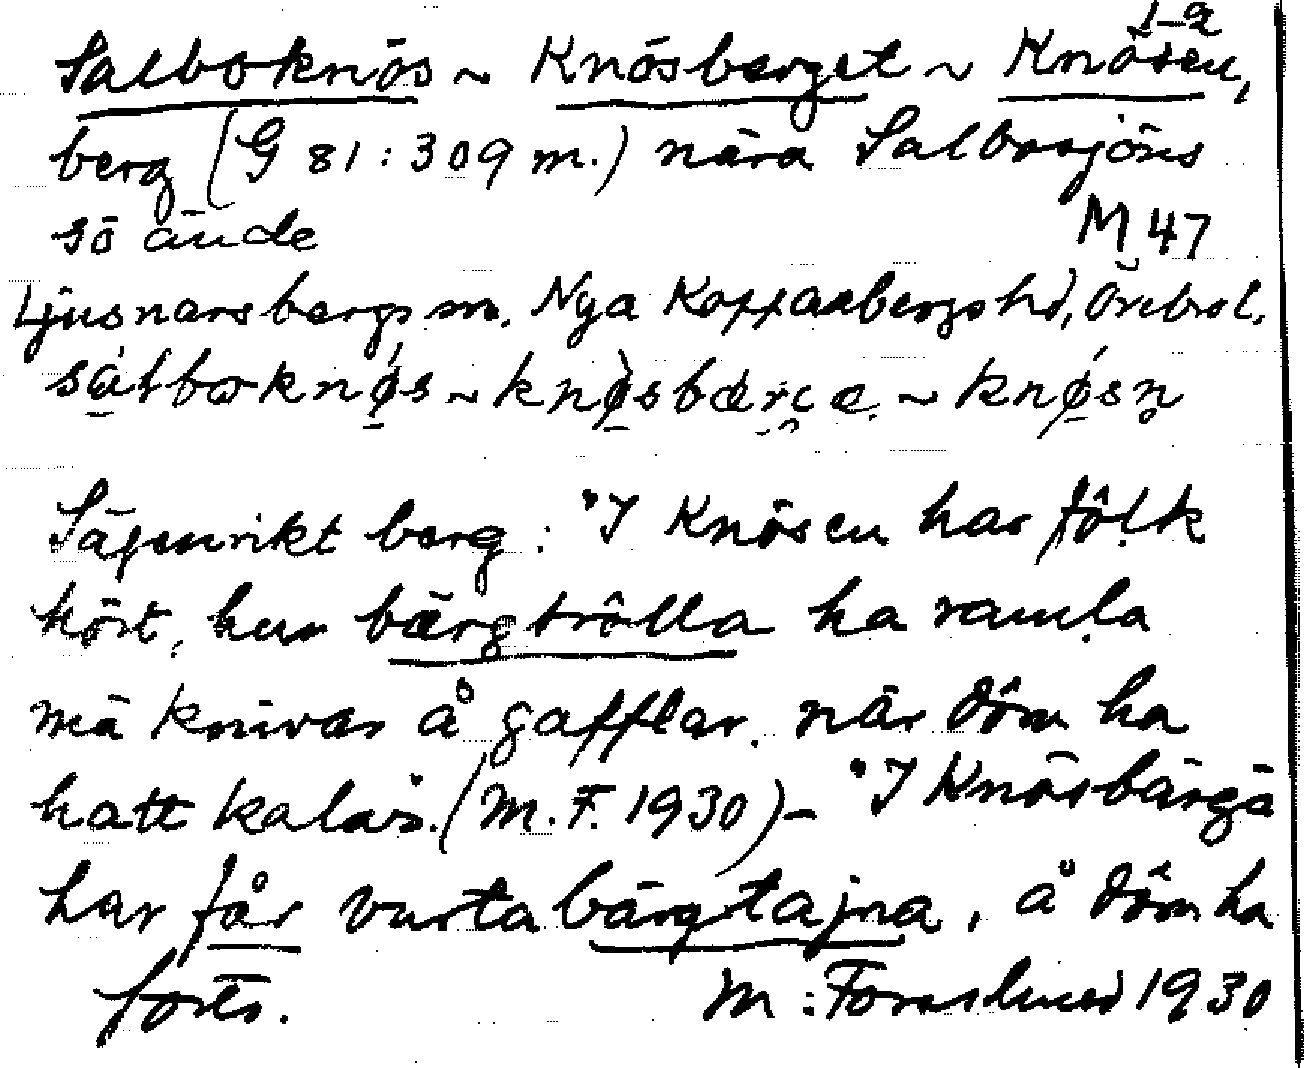 1-2
Salboknös ~ Knösberget ~ Knösen,
berg (G 81:309 m.) nära Salbosjöns
sö ände M 47
Ljusnarsbergs sn. Nya Kopparbergs hd, Örebro l.
Säpenrikt berg: "I Knösen har fôḷk
hört, hur bärgtrôlla ha ramḷa
mä knivar å gafflar, när dôm ha
hatt kalas". (M.F. 1930) – "I Knösbärgä
har får vurta bärgtajna, å dôm ha
forts. M: Forslund 1930